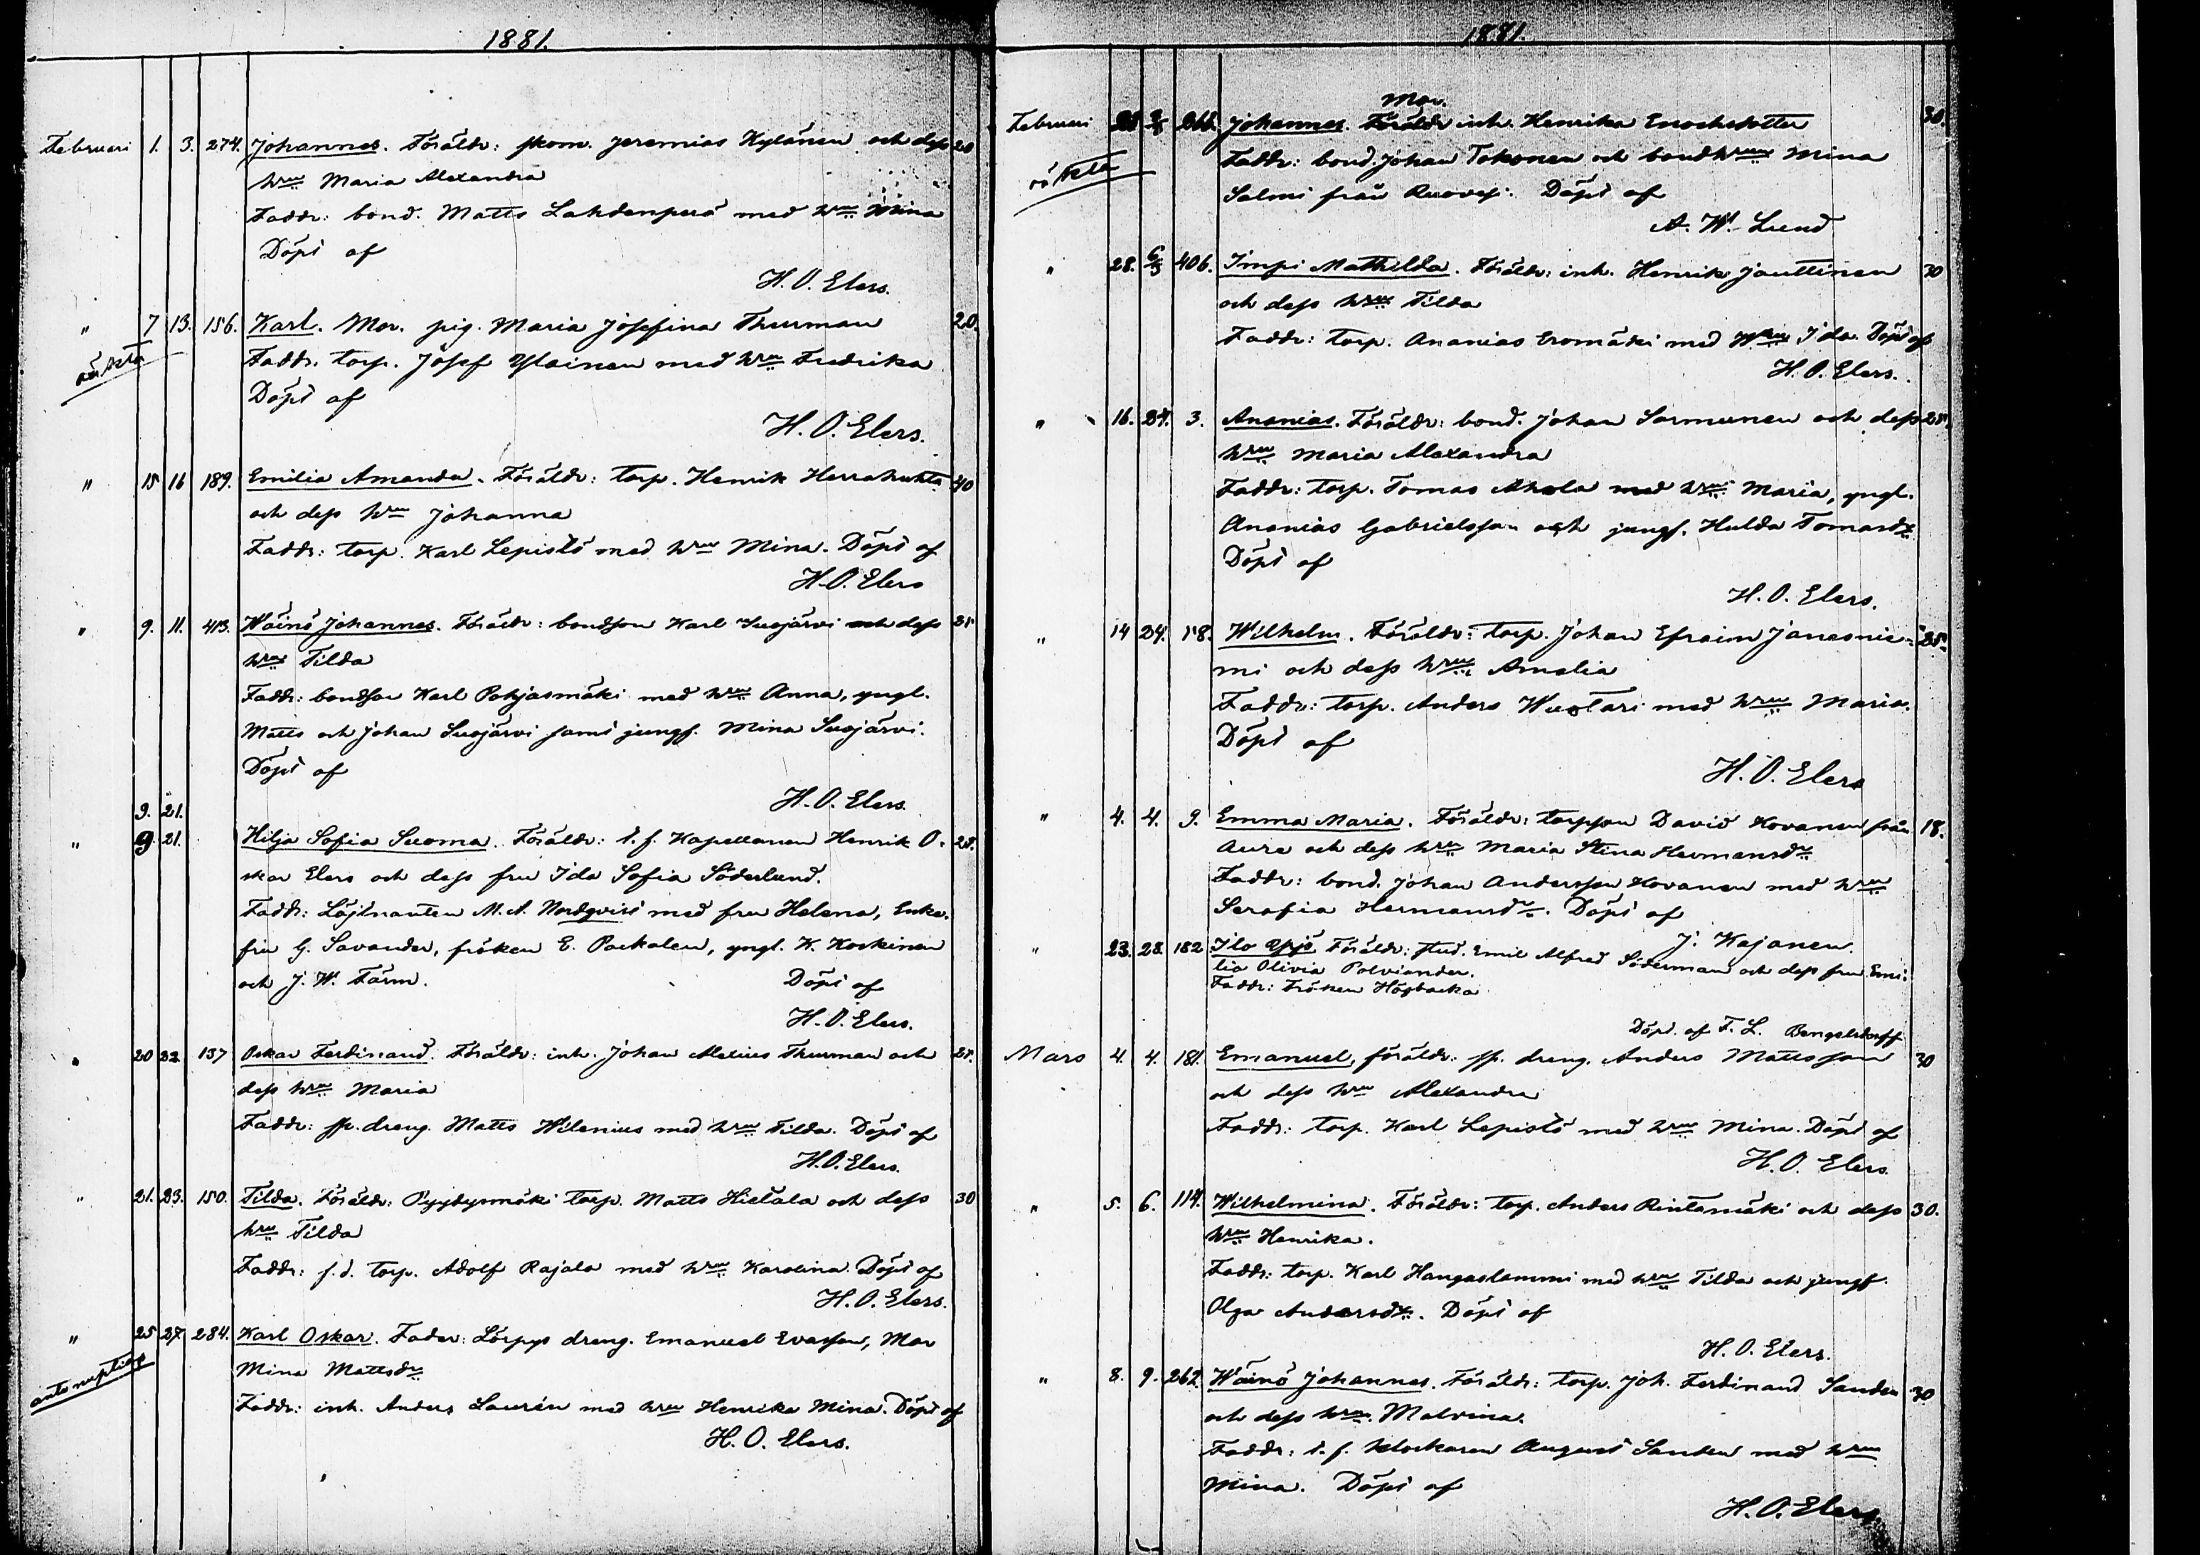 1881.
Februari 1. 3. 274. Johannes. Föräldr: skom. Jeremias Kylänen och dess 20
hru Maria Alexandra
Faddr: bond. Matts Lahdenperä med hru Mina
Döpt af
H. O. Elers.
" 7 13. 156. Karl. Mor. pig. Maria Josefina Thurman 20.
oäkta
Faddr. torp. Josef Yläinen med hru Fredrika
Döpt af
H. O. Elers.
" 15 16 189. Emilia Amanda. Föräldr: torp. Henrik Herrahuhta 40
och dess hru Johanna
Faddr: torp. Karl Lepistö med hru Mina. Döpt af
H. O. Elers
" 9. 11. 413. Wäinö Johannes. Föräldr: bondson Karl Suojärvi och dess 25
hru Tilda
Faddr: bondson Karl Pohjasmäki med hru Anna, yngl.
Matts och Johan Suojärvi samt jungf. Mina Suojärvi.
Döpt af
H. O. Elers.
9. 21.
" 9. 21. Hilja Sofia Suoma. Föräldr: t. f. Kapellanen Henrik O-
skar Elers och dess fru Ida Sofia Söderlund.
Faddr: Löjtnanten M. A. Nordqvist med fru Helena, Enke-
fru G. Savander, fröken E. Packalen, yngl. K. Koskinen
och J. W. Färm. Döpt af
H. O. Elers.
" 20 22. 137 Oskar Ferdinand. Föräldr: inh. Johan Alexius Thurman och 25.
dess hru Maria
Faddr: sp. dreng. Matts Wilenius med hru Tilda. Döpt af
H. O. Elers.
" 21. 23. 150. Tilda. Föräldr: Pyydysmäki torp. Matts Hietala och dess 30
hru Tilda
Faddr: f. d. torp. Adolf Rajala med hru Karolina. Döpt af
H. O. Elers.
" 25 27. 284. Karl Oskar. Fader: Lörpys dreng. Emanuel Evasson, Mor
ante nuptias
Mina Mattsdr
Faddr: inh. Anders Laurén med hru Henrika Mina. Döpt af
H. O. Elers.
1881.
Mor.
Februari Johannes. Föräldr inh. Henrika Enochsdotter 30.
oäkta
Faddr: bond. Johan Tokonen och bondhru Mina
Salmi från Ruovesi. Döpt af
A. W. Lund
" 28. 6/3 406. Impi Mathilda. Föräldr: inh. Henrik Jauttinen 30
och dess hru Tilda
Faddr: torp. Ananias Eromäki med hru Ida. Döpt af
H. O. Elers.
" 16. 24. 3. Ananias. Föräldr: bond. Johan Sormunen och dess 25.
hru Maria Alexandra
Faddr: torp. Tomas Ahola med hru Maria, yngl.
Ananias Gabrielsson och jungf. Hulda Tomasdr.
Döpt af
H. O. Elers.
" 14 24. 58. Wilhelm. Föräldr: torp. Johan Efraim Janesnie- 35.
mi och dess hru Amalia
Faddr: torp. Anders Wuolari med hru Maria.
Döpt af
H. O. Elers
" 4. 4. 9. Emma Maria. Föräldr: torpson David Kovanen från 18.
Aure och dess hru Maria Stina Hermansdr
Faddr: bond. Johan Andersson Kovanen med hru
Serafia Hermansdr. Döpt af
J. Kajanen.
" 23. 28. 182 Ilo Yrjö. Föräldr: stud. Emil Alfred Söderman och dess fru Emi-
lia Olivia Polviander.
Faddr: Fröken Högbacka
Döpt af F. L. Bengelsdorff
Mars 4. 4. 181. Emanuel, föräldr: sp. dreng. Anders Mattsson 30
och dess hru Alexandra
Faddr: torp. Karl Lepistö med hru Mina. Döpt af
H. O. Elers.
" 5. 6. 114. Wilhelmina. Föräldr: torp. Anders Rintamäki och dess 30.
hru Henrika.
Faddr: torp. Karl Hangaslammi med hru Tilda och jungf.
Olga Andersdr. Döpt af
H. O. Elers.
" 8. 9. 262. Wäinö Johannes. Föräldr: torp. Joh. Ferdinand Sandén 30
och dess hru Malvina.
Faddr: t. f. klockaren August Sandén med hru
Mina. Döpt af
H. O. Elers.